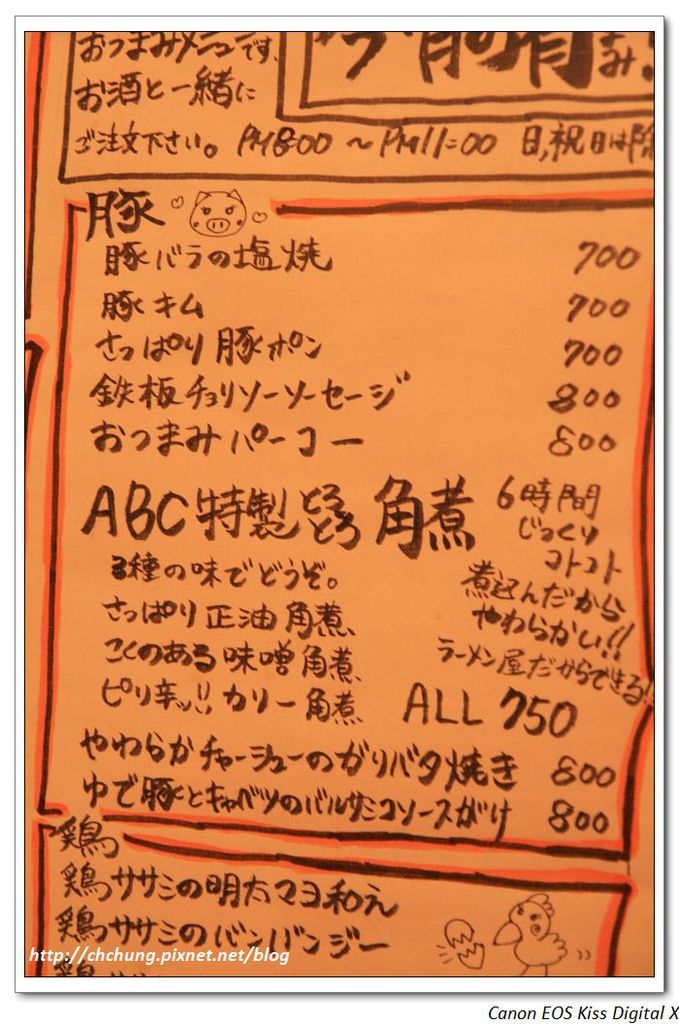 おつまみメニューです。
お酒と一緒に
ご注文下さい。 PM6:00 ~ PM11:00 日,祝日は除
豚
豚バラの塩焼 700
豚キム 700
さっぱり豚ポン 700
鉄板チョリソーソーセージ 800
おつまみパーコー 800
ABC特製とろとろ角煮
6時間
じっくり
コトコト
煮込んだから
やわらかい!!
ラーメン屋だからできる!!
3種の味でどうぞ。
さっぱり正油角煮、
こくのある味噌角煮、
ピリ辛ッ!!カリー角煮
ALL 750
やわらかチャーシューのガリバタ焼き 800
ゆで豚とキャベツのバルサミコソースがけ 800
鶏
鶏ササミの明太マヨ和え
鶏ササミのバンバンジー
http://chchung.pixnet.net/blog
Canon EOS Kiss Digital X